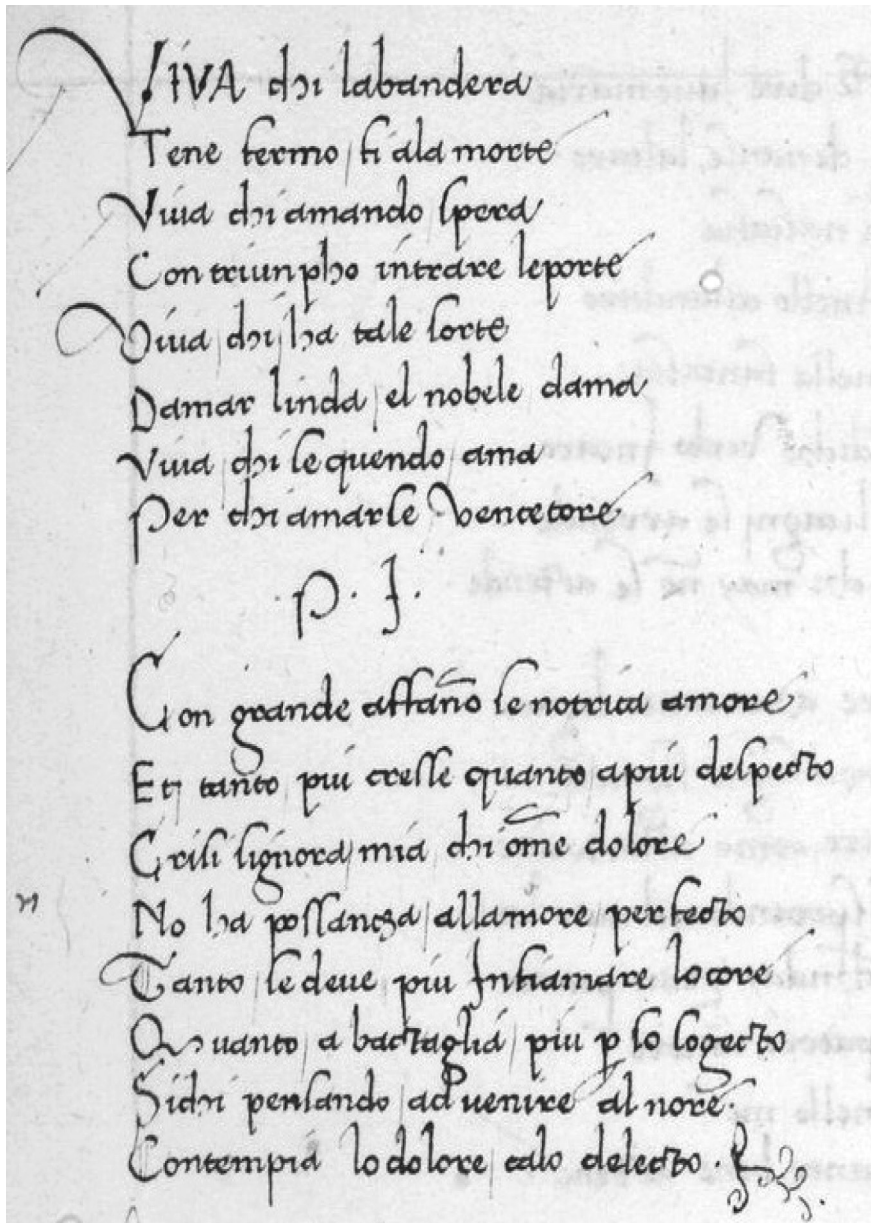 VIVA chi labandera
Tene fermo fi ala morte
Viua chi amando spera
Con triunpho intrare leporte
Viua chi ha tale sorte
Damar linda el nobele dama
Viua chi sequendo ama
Per chiamarse Vencetore
P. I.
Con grande affano se notrica amore
Et tanto piu cresse quanto apiu despecto
Crisi signora mia chi ome dolore
n
No ha possancza allamore perfecto
Tanto se deue piu Infiamare locore
Quanto a bactaglia piu p lo sogecto
Sichi pensando ad uenire al nore
Contempia lo dolore calo delecto